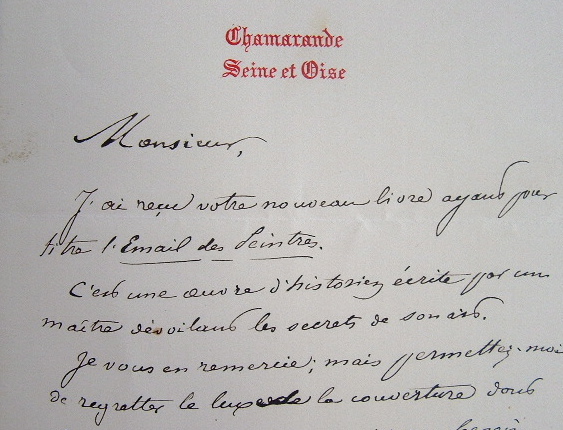 Chamarande
Seine et Oise
Monsieur,
J'ai reçu votre nouveau livre ayant pour
titre l'Email des Peintres.
C'est une œuvre d'historien écrite par un
maître dévoilant les secrets de son art.
Je vous en remercie; mais permettez-moi
de regretter le luxe de la couverture dont